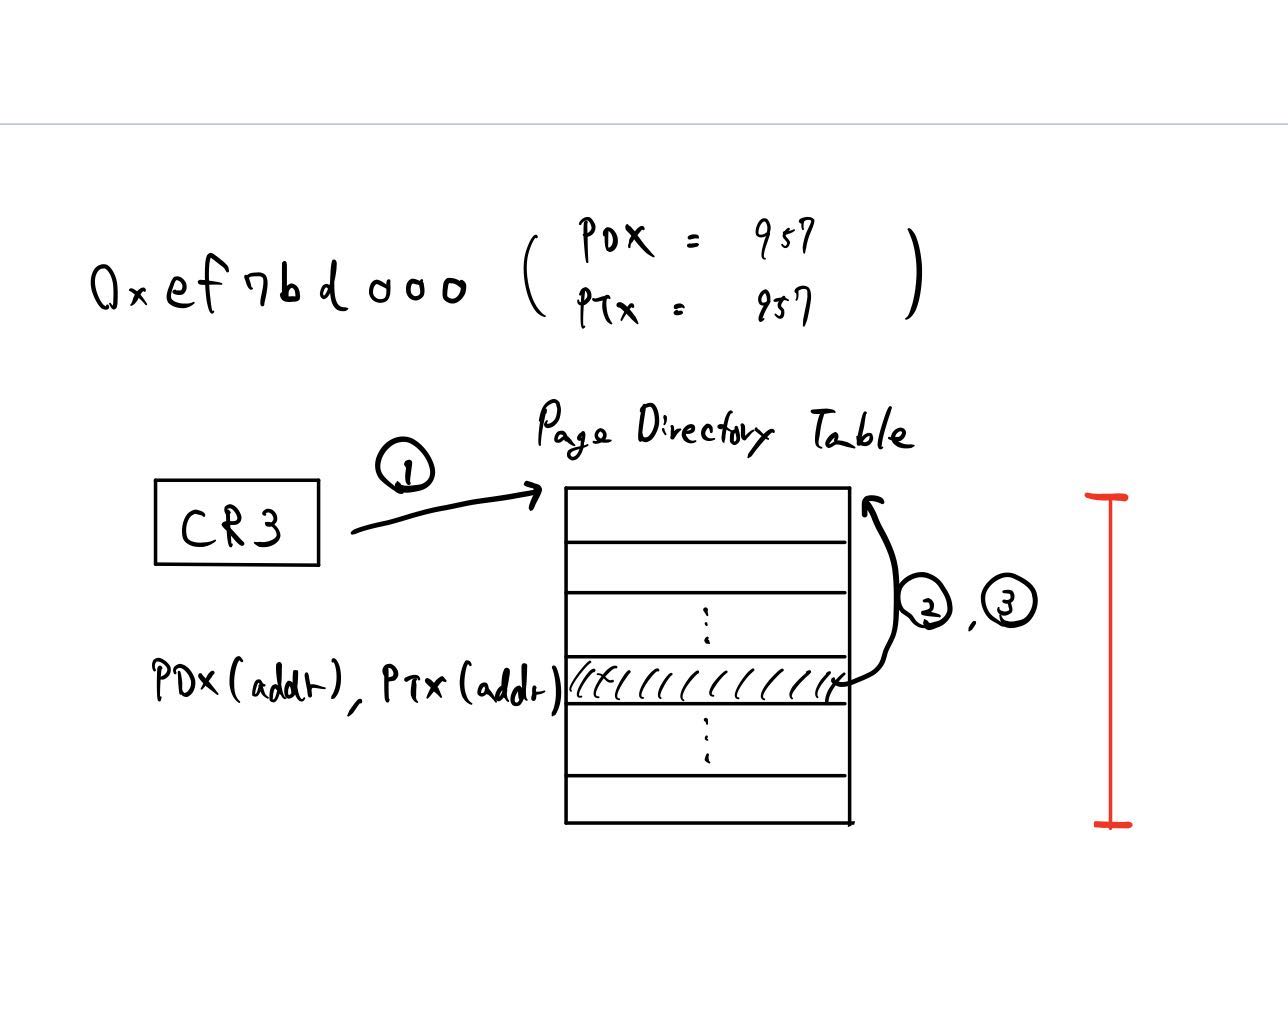 0xef7bd000 ( PDX = 957
PTX = 957 )
Page Directory Table
①
CR3
②, ③
PDX(addr), PTX(addr)